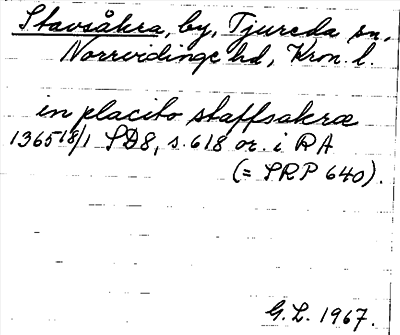 Stavsåkra, by, Tjureda sn,
Norrvidinge hd, Kron. l.
in placito staffsakræ
1365 18/1 SD8, s. 618 or. i RA
(= SRP 640).
G.L. 1967.